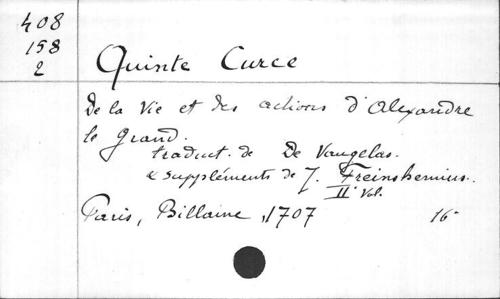 408
158
2
Quinte Curce
De la Vie et des actions d'Alexandre
le Grand.
traduct. de De Vaugelas.
& suppléments de J. Freinshemius.
II Vol.
Paris, Billaine, 1707 16°